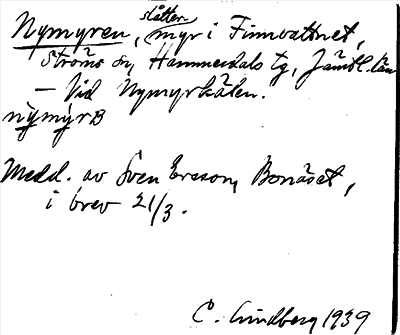 Nymyren, slåttermyr i Finnvattnet,
Ströms sn, Hammerdals tg, Jämtl. län
– Vid Nymyrkälen.
nỳmýrB
Medd. av Sven Ersson, Bonäset,
i brev 21/3.
C. Lindberg 1939